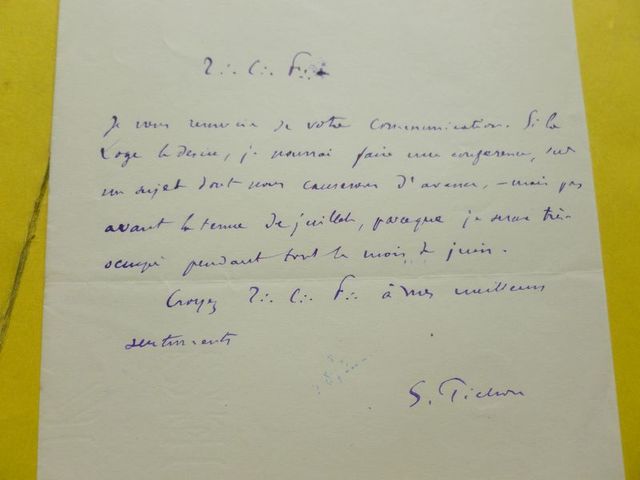 T∴ C∴ F∴
Je vous remercie de votre communication. Si la
Loge le désire, je pourrai faire une conférence, sur
un sujet dont nous causerons d'avance, – mais pas
avant la tenue de juillet, parceque je serai très
occupé pendant tout le mois de juin.
Croyez T∴ C∴ F∴ à mes meilleurs
sentiments
S. Pichon